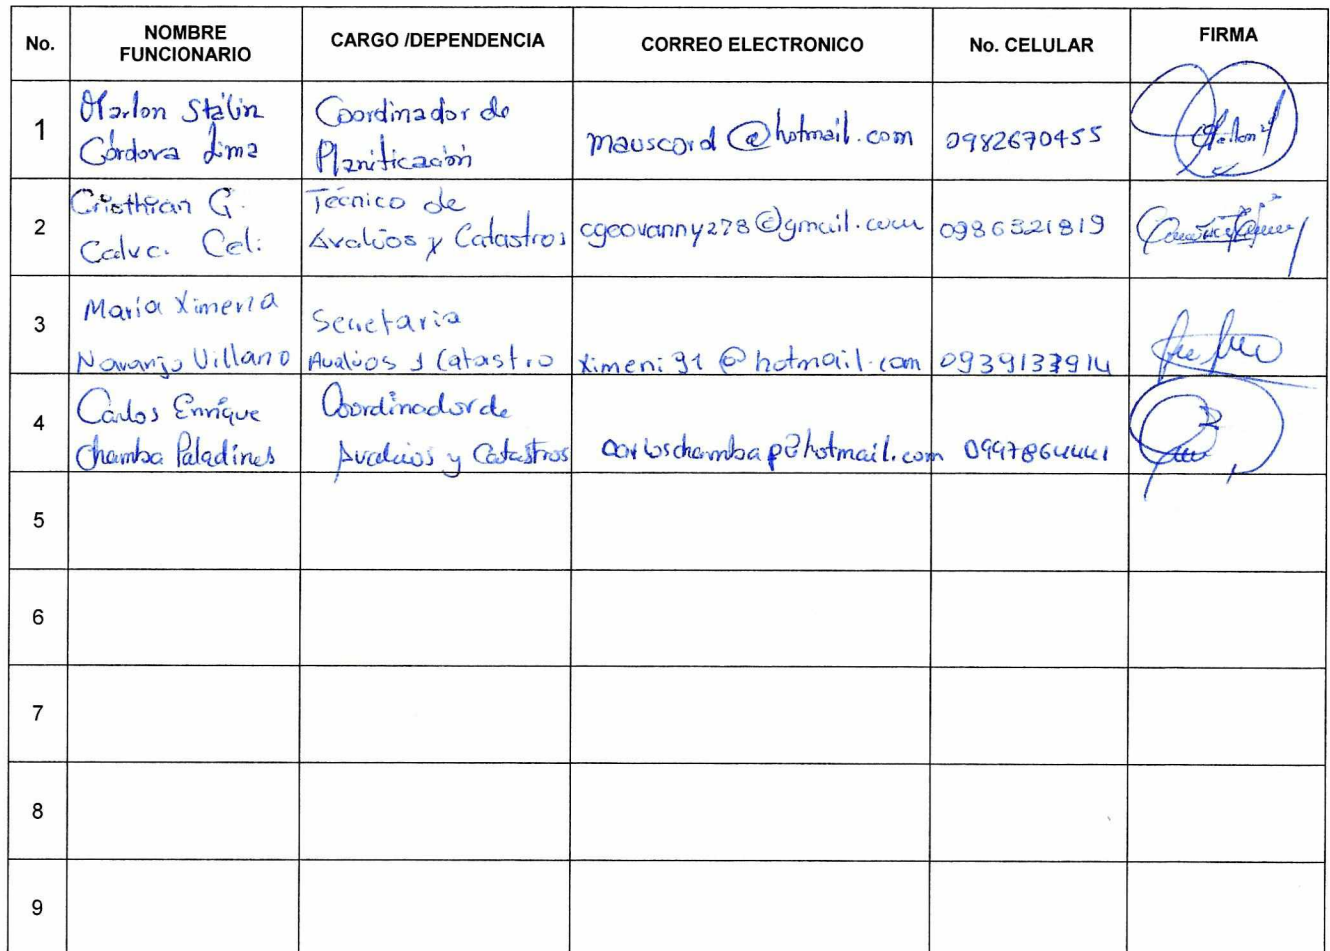 No. NOMBRE FUNCIONARIO CARGO /DEPENDENCIA CORREO ELECTRONICO No. CELULAR FIRMA
1 Marlon Stálin Córdova Lima Coordinador de Planificación mauscord@hotmail.com 0982670455
2 Cristhian G. Calva. Celi Técnico de Avalúos y Catastros cgeovanny278@gmail.com 0986321819
3 María Ximena Naranjo Villano Secretaria Avalúos y Catastro ximeni91@hotmail.com 0939133914
4 Carlos Enrique Chamba Paladines Coordinador de Avalúos y Catastros carloschambap@hotmail.com 0997864441
5
6
7
8
9